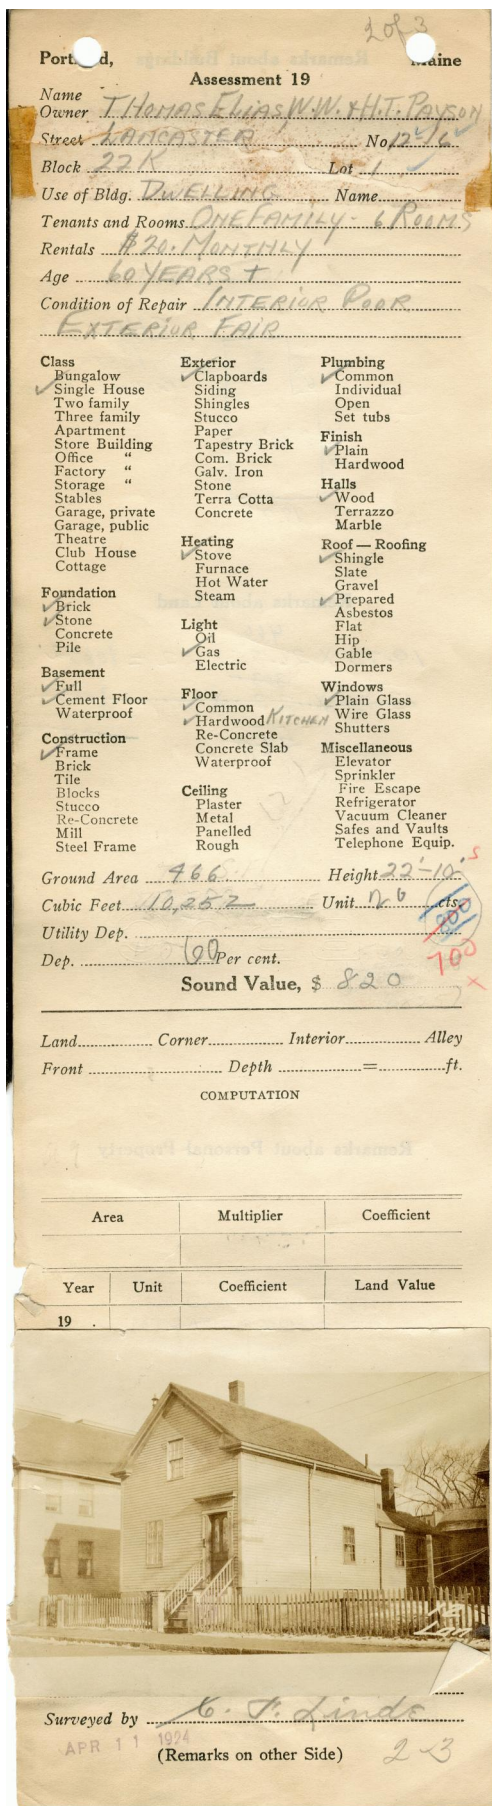 2 of 3
Portland, Maine
Assessment 19
Name
Owner THOMAS ELIAS W.W. & H.T. PAYSON
Street LANCASTER No. 12-16
Block 22K Lot 1
Use of Bldg. DWELLING Name
Tenants and Rooms ONE FAMILY - 6 ROOMS
Rentals $20. MONTHLY
Age 60 YEARS +
Condition of Repair INTERIOR POOR
EXTERIOR FAIR
Class
✓Bungalow
✓Single House
Two family
Three family
Apartment
Store Building
Office "
Factory "
Storage "
Stables
Garage, private
Garage, public
Theatre
Club House
Cottage
Foundation
✓Brick
✓Stone
Concrete
Pile
Basement
✓Full
✓Cement Floor
Waterproof
Construction
✓Frame
Brick
Tile
Blocks
Stucco
Re-Concrete
Mill
Steel Frame
Exterior
✓Clapboards
Siding
Shingles
Stucco
Paper
Tapestry Brick
Com. Brick
Galv. Iron
Stone
Terra Cotta
Concrete
Heating
✓Stove
Furnace
Hot Water
Steam
Light
Oil
✓Gas
Electric
Floor
✓Common
✓Hardwood KITCHEN
Re-Concrete
Concrete Slab
Waterproof
Ceiling
Plaster
Metal
Panelled
Rough
Plumbing
✓Common
Individual
Open
Set tubs
Finish
✓Plain
Hardwood
Halls
✓Wood
Terrazzo
Marble
Roof — Roofing
✓Shingle
Slate
Gravel
✓Prepared
Asbestos
Flat
Hip
Gable
Dormers
Windows
✓Plain Glass
Wire Glass
Shutters
Miscellaneous
Elevator
Sprinkler
Fire Escape
Refrigerator
Vacuum Cleaner
Safes and Vaults
Telephone Equip.
Ground Area 466 Height 22'-10"
Cubic Feet 10,252 Unit 20 cts.
Utility Dep.
Dep. 60 Per cent. 700
Sound Value, $ 820
Land Corner Interior Alley
Front Depth = ft.
COMPUTATION
Area Multiplier Coefficient
Year Unit Coefficient Land Value
19 .
12
Lan
Surveyed by C. F. Linde
APR 11 1924
(Remarks on other Side) 2-3